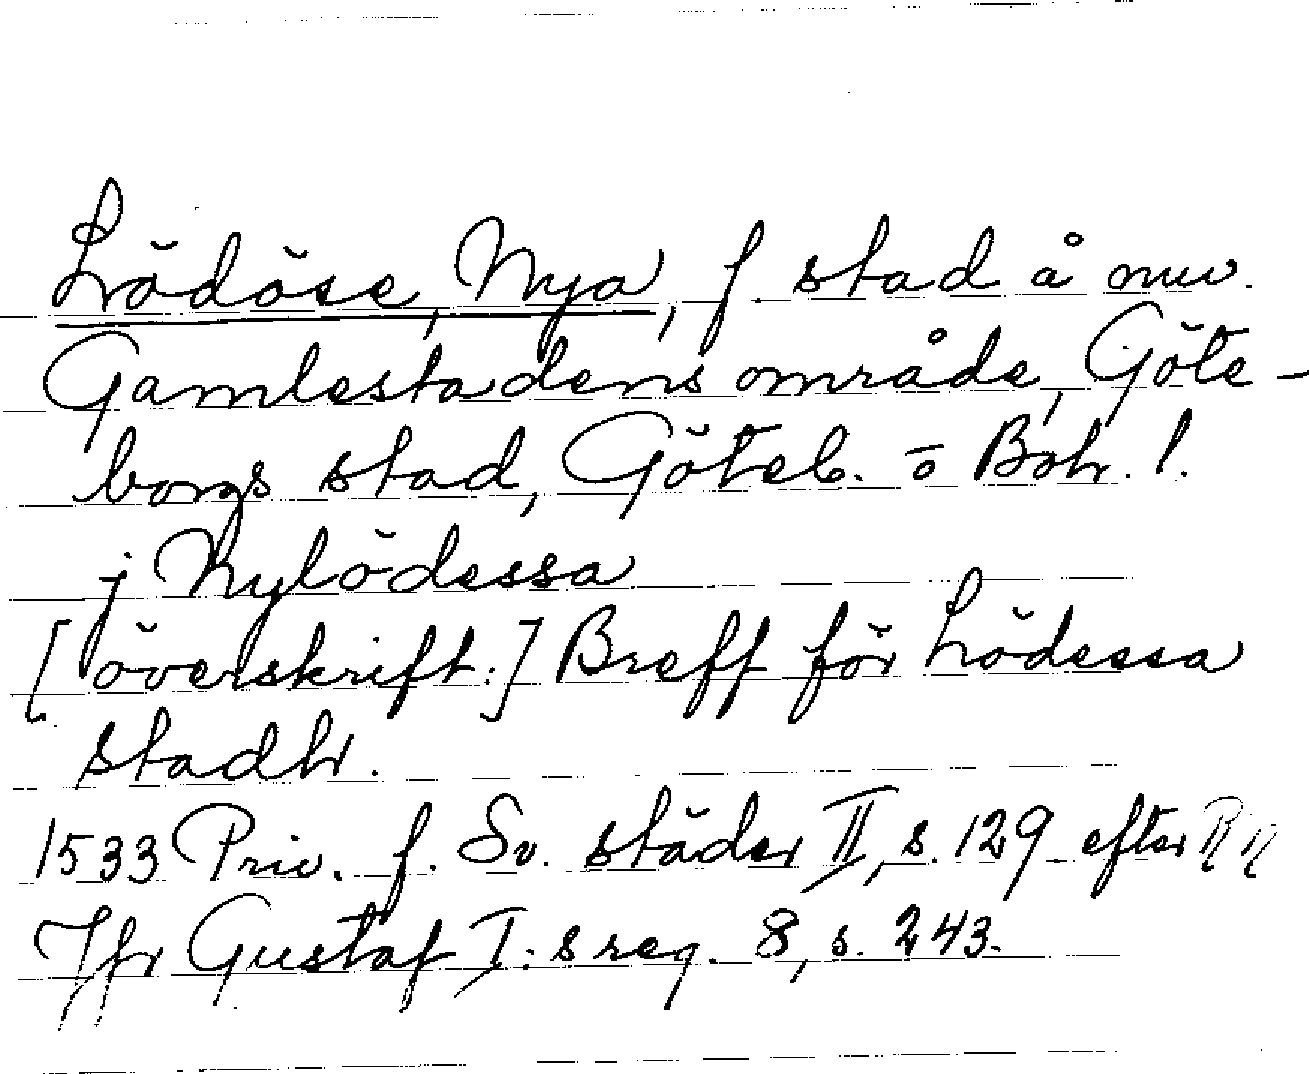 Lödöse, Nya, f. stad å nuv.
Gamlestadens område, Göte-
borgs stad, Göteb. o Boh. l.
j Nylödessa
[överskift:] Breff för Lödessa
stadh.
1533 Priv. f. Sv. städer II, s. 129 efter RR
Jfr Gustaf I:s reg. 8, s. 243.